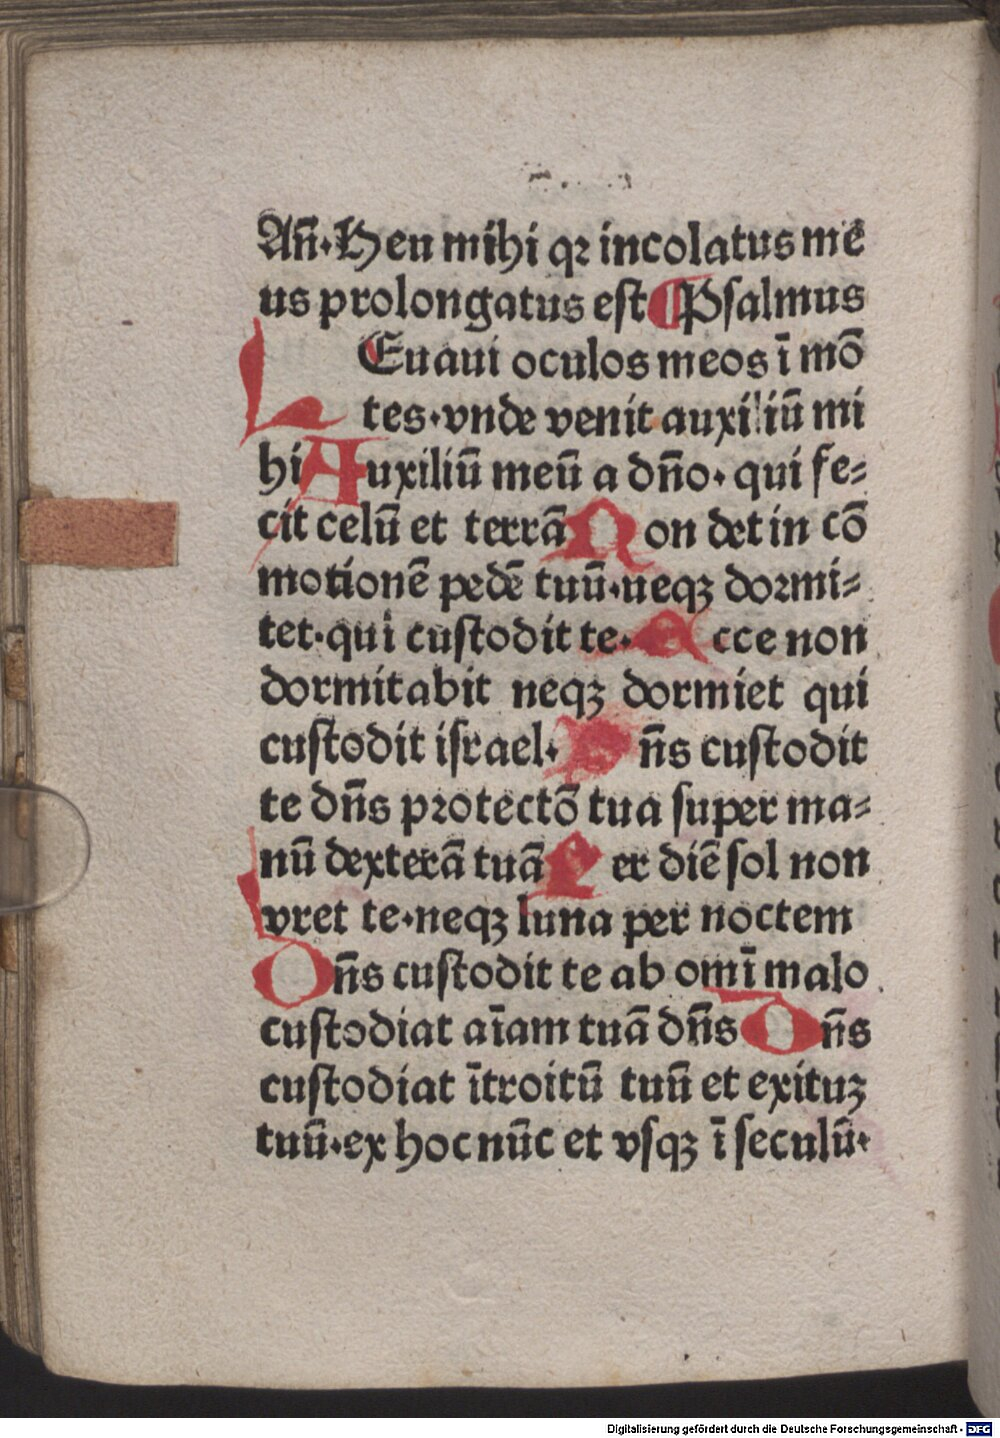 Añ· Heu mihi qꝛ incolatus me
us prolongatus est Psalmus
LEuaui oculos meos ī mō
tes· vnde venit auxiliū mi
hi Auxiliū meū a dño· qui fe⸗
cit celū et terrā Non det in cō
motionē pedē tuū· neqꝫ dormi⸗
tet· qui custodit te· Ecce non
dormitabit neqꝫ dormiet qui
custodit israel· Dñs custodit
te dñs protectō tua super ma⸗
nū dexterā tuā Per diē sol non
vret te· neqꝫ luna per noctem
Dñs custodit te ab omī malo
custodiat aīam tuā dñs Dñs
custodiat ītroitū tuū et exituꝫ
tuū· ex hoc nūc et vsqꝫ ī seculū·
Digitalisierung gefördert durch die Deutsche Forschungsgemeinschaft - DFG